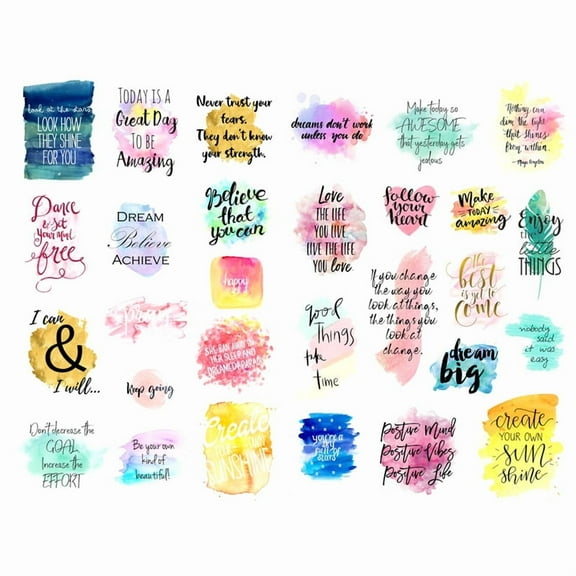 look at the stars
LOOK HOW
THEY SHINE
FOR YOU
TODAY IS A
GReat Day
TO BE
AMazing
Never trust your
fears.
They don't know
your strength.
dreams don't work
unless you do.
Make today so
AWESOME
that yesterday gets
jealous
Nothing can
dim the light
that shines
from within.
- Maya Angelou
Dance
& Set
Your soul
free
DREAM
Believe
ACHIEVE
Believe
that
you can
happy
LOVE
THE LIFE
YOU LIVE
LIVE THE LIFE
YOU LOVE.
follow
your
heart
Make
TODAY
amazing
Enjoy
the
little
THINGS
I can
&
I will...
Keep going
SHE RAN AWAY IN
HER SLEEP AND
DREAMED OF PARADISE
good
Things
take
time
If you change
the way you
look at things,
the things you
look at
change.
The
best
is yet to
come
dream
big
nobody
said
it was
easy
Don't decrease the
GOAL
Increase the
EFFORT
Be your own
kind of
beautiful!
Create
YOUR OWN
SUNSHINE
you're a
sky
full of
stars
Positive Mind
Positive Vibes
Positive Life
create
YOUR OWN
sun
shine